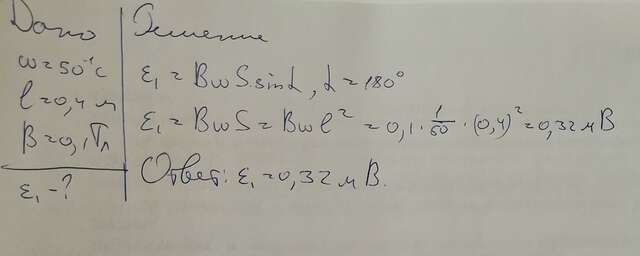 Дано
ω = 50⁻¹ с
l = 0,4 м
B = 0,1 Тл
ε₁ - ?
Решение
ε₁ = BωS·sinα, α = 180°
ε₁ = BωS = Bωl² = 0,1 · 1/50 · (0,4)² = 0,32 мВ
Ответ: ε₁ = 0,32 мВ.